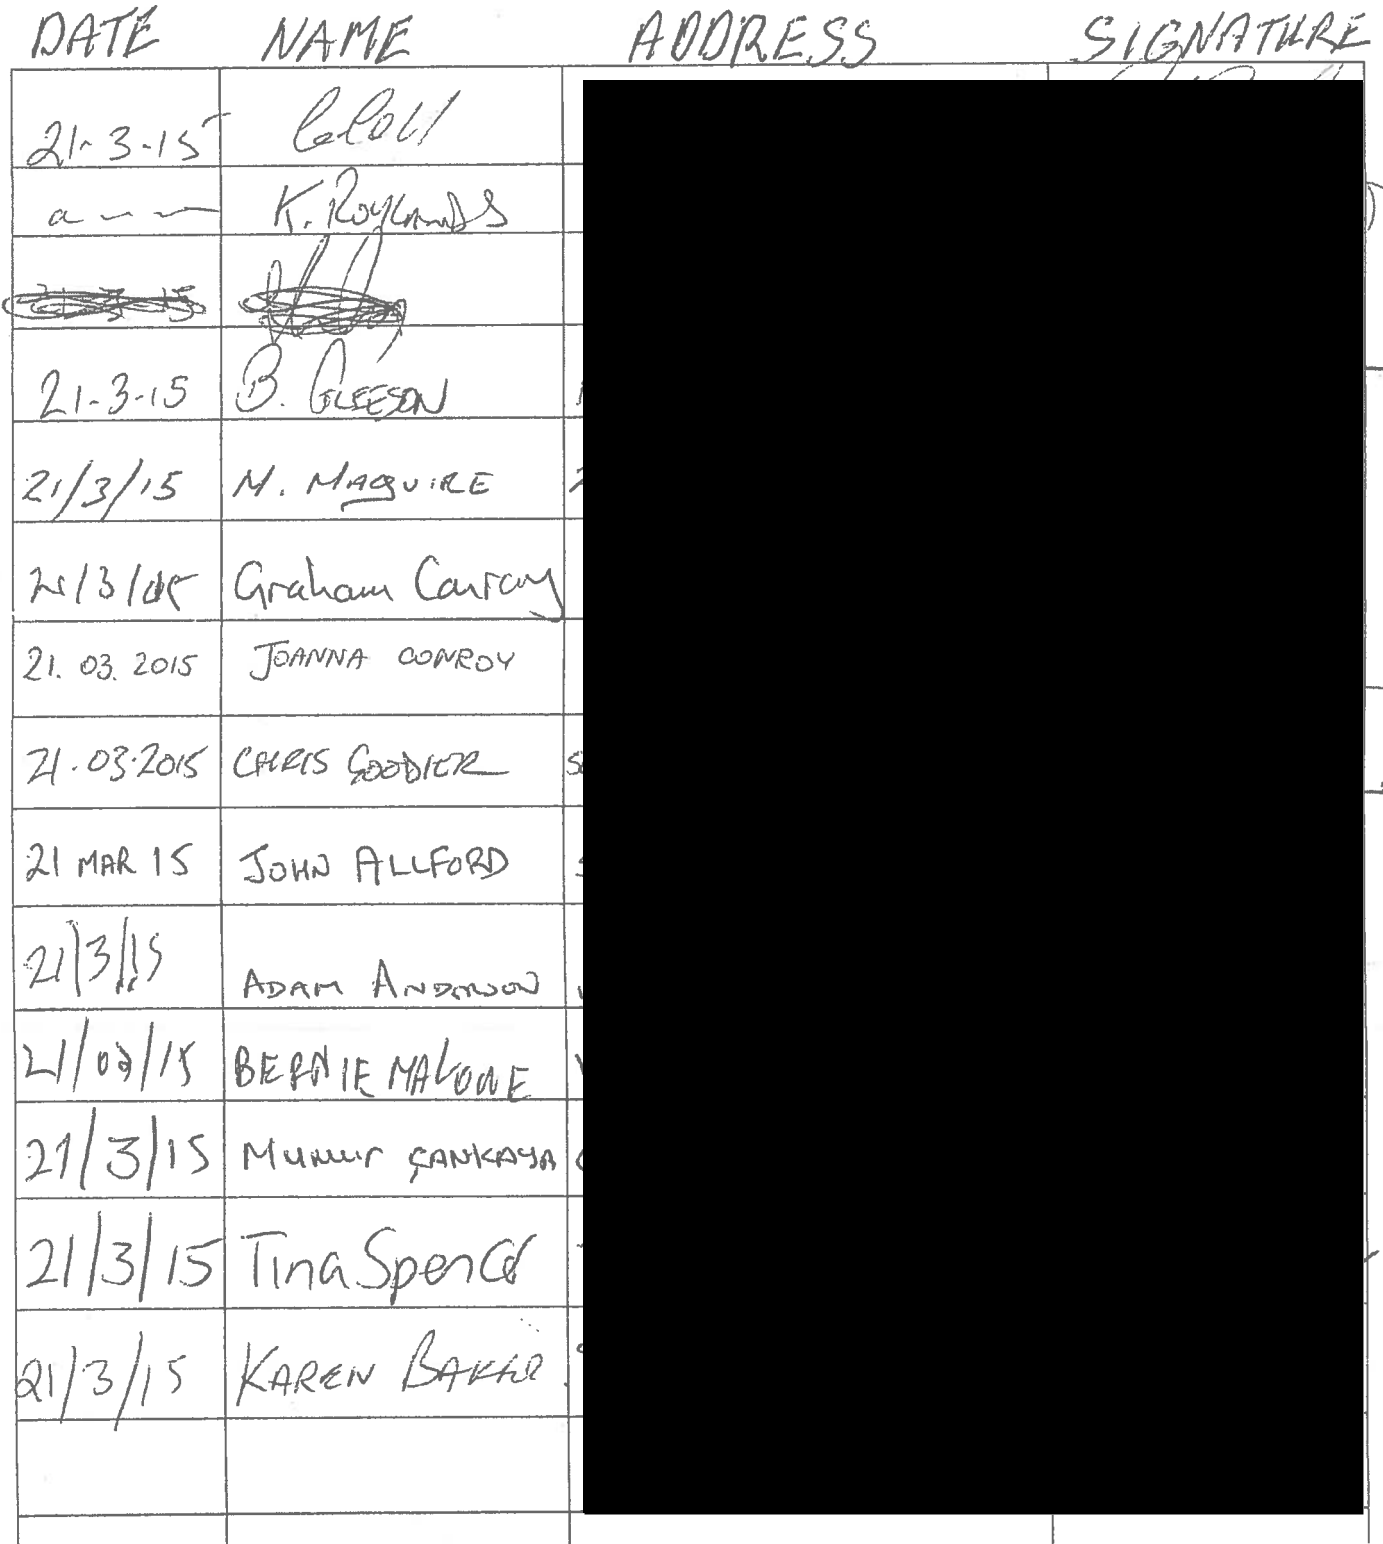 DATE NAME ADDRESS SIGNATURE
21-3-15
K. Roylands
21-3-15 B. GLEESON
21/3/15 M. MAGUIRE
21/3/15 Graham Conroy
21.03.2015 JOANNA CONROY
21.03.2015 CHRIS GOODIER
21 MAR 15 JOHN ALLFORD
21/3/15 ADAM ANDERSON
21/03/15 BERNIE MALONE
21/3/15 MUNUR ÇANKAYA
21/3/15 Tina Spencer
21/3/15 KAREN BAKER